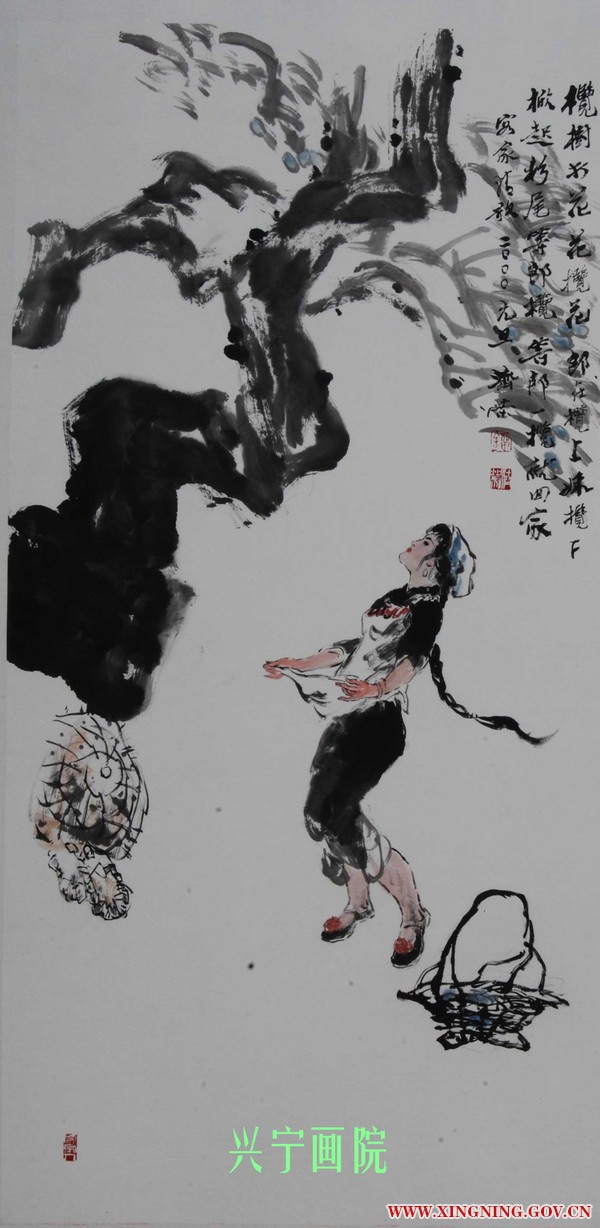 欖樹打花花欖花郎在欖上妹欖下
掀起衫尾等郎欖等郎一攬就回家
客家情歌 二〇〇〇元旦
兴宁画院
WWW.XINGNING.GOV.CN